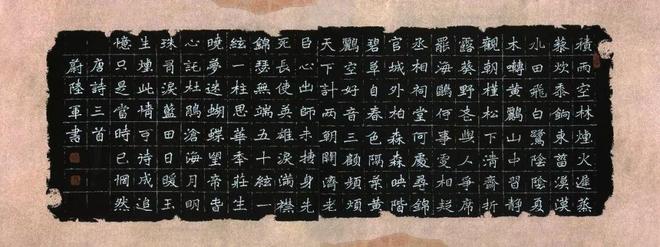 積雨空林煙火遲蒸
藜炊黍餉東菑漠漠
水田飛白鷺陰陰夏
木囀黄鸝山中習静
觀朝槿松下清齋折
露葵野老與人爭席
罷海鷗何事更相疑
丞相祠堂何處尋錦
官城外柏森森映階
碧草自春色隔葉黄
鸝空好音三顧頻煩
天下計兩朝開濟老
臣心出師未捷身先
死長使英雄淚滿襟
錦瑟無端五十絃一
絃一柱思華年莊生
曉夢迷蝴蝶望帝春
心託杜鵑滄海月明
珠有淚藍田日暖玉
生煙此情可待成追
憶只是當時已惘然
唐詩三首
蔚陸軍書